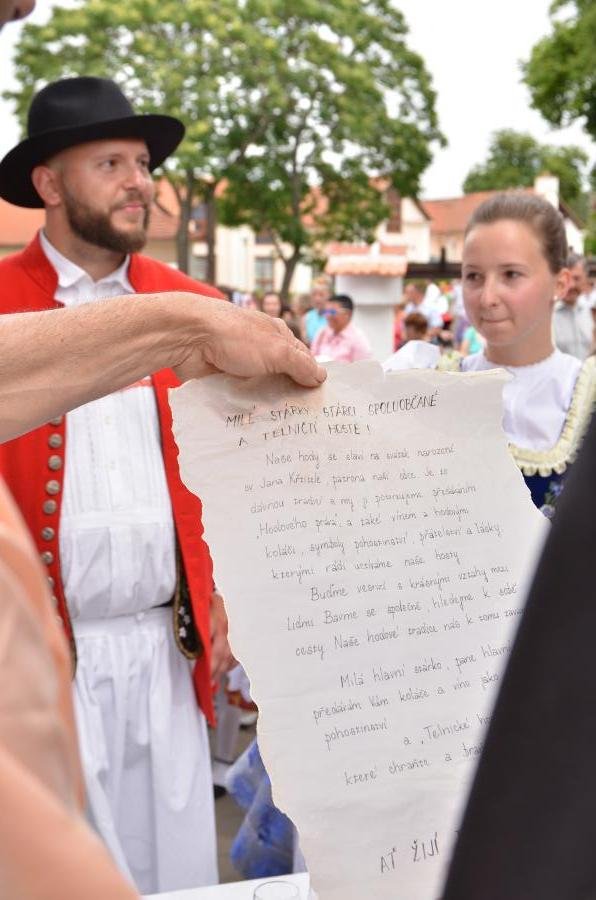 MILÉ STÁRKY, STÁRCI, SPOLUOBČANÉ
A TELNIČTÍ HOSTÉ!
Naše hody se slaví na svátek narození
sv. Jana Křtitele, patrona naší obce. Je to
dávnou tradicí a my ji posilujeme předáním
„Hodového práva", a také vínem a hodovými
koláči, symboly pohostinství, přátelství a lásky,
kterými rádi uctíváme naše hosty.
Buďme vesnicí s krásnými vztahy mezi
lidmi. Bavme se společně, hledejme k sobě
cesty. Naše hodové tradice nás k tomu
Milá hlavní stárko, pane hlavní
předávám Vám koláče a víno jako
pohostinství
a „Telnické
které chraňte a
AŤ ŽIJÍ